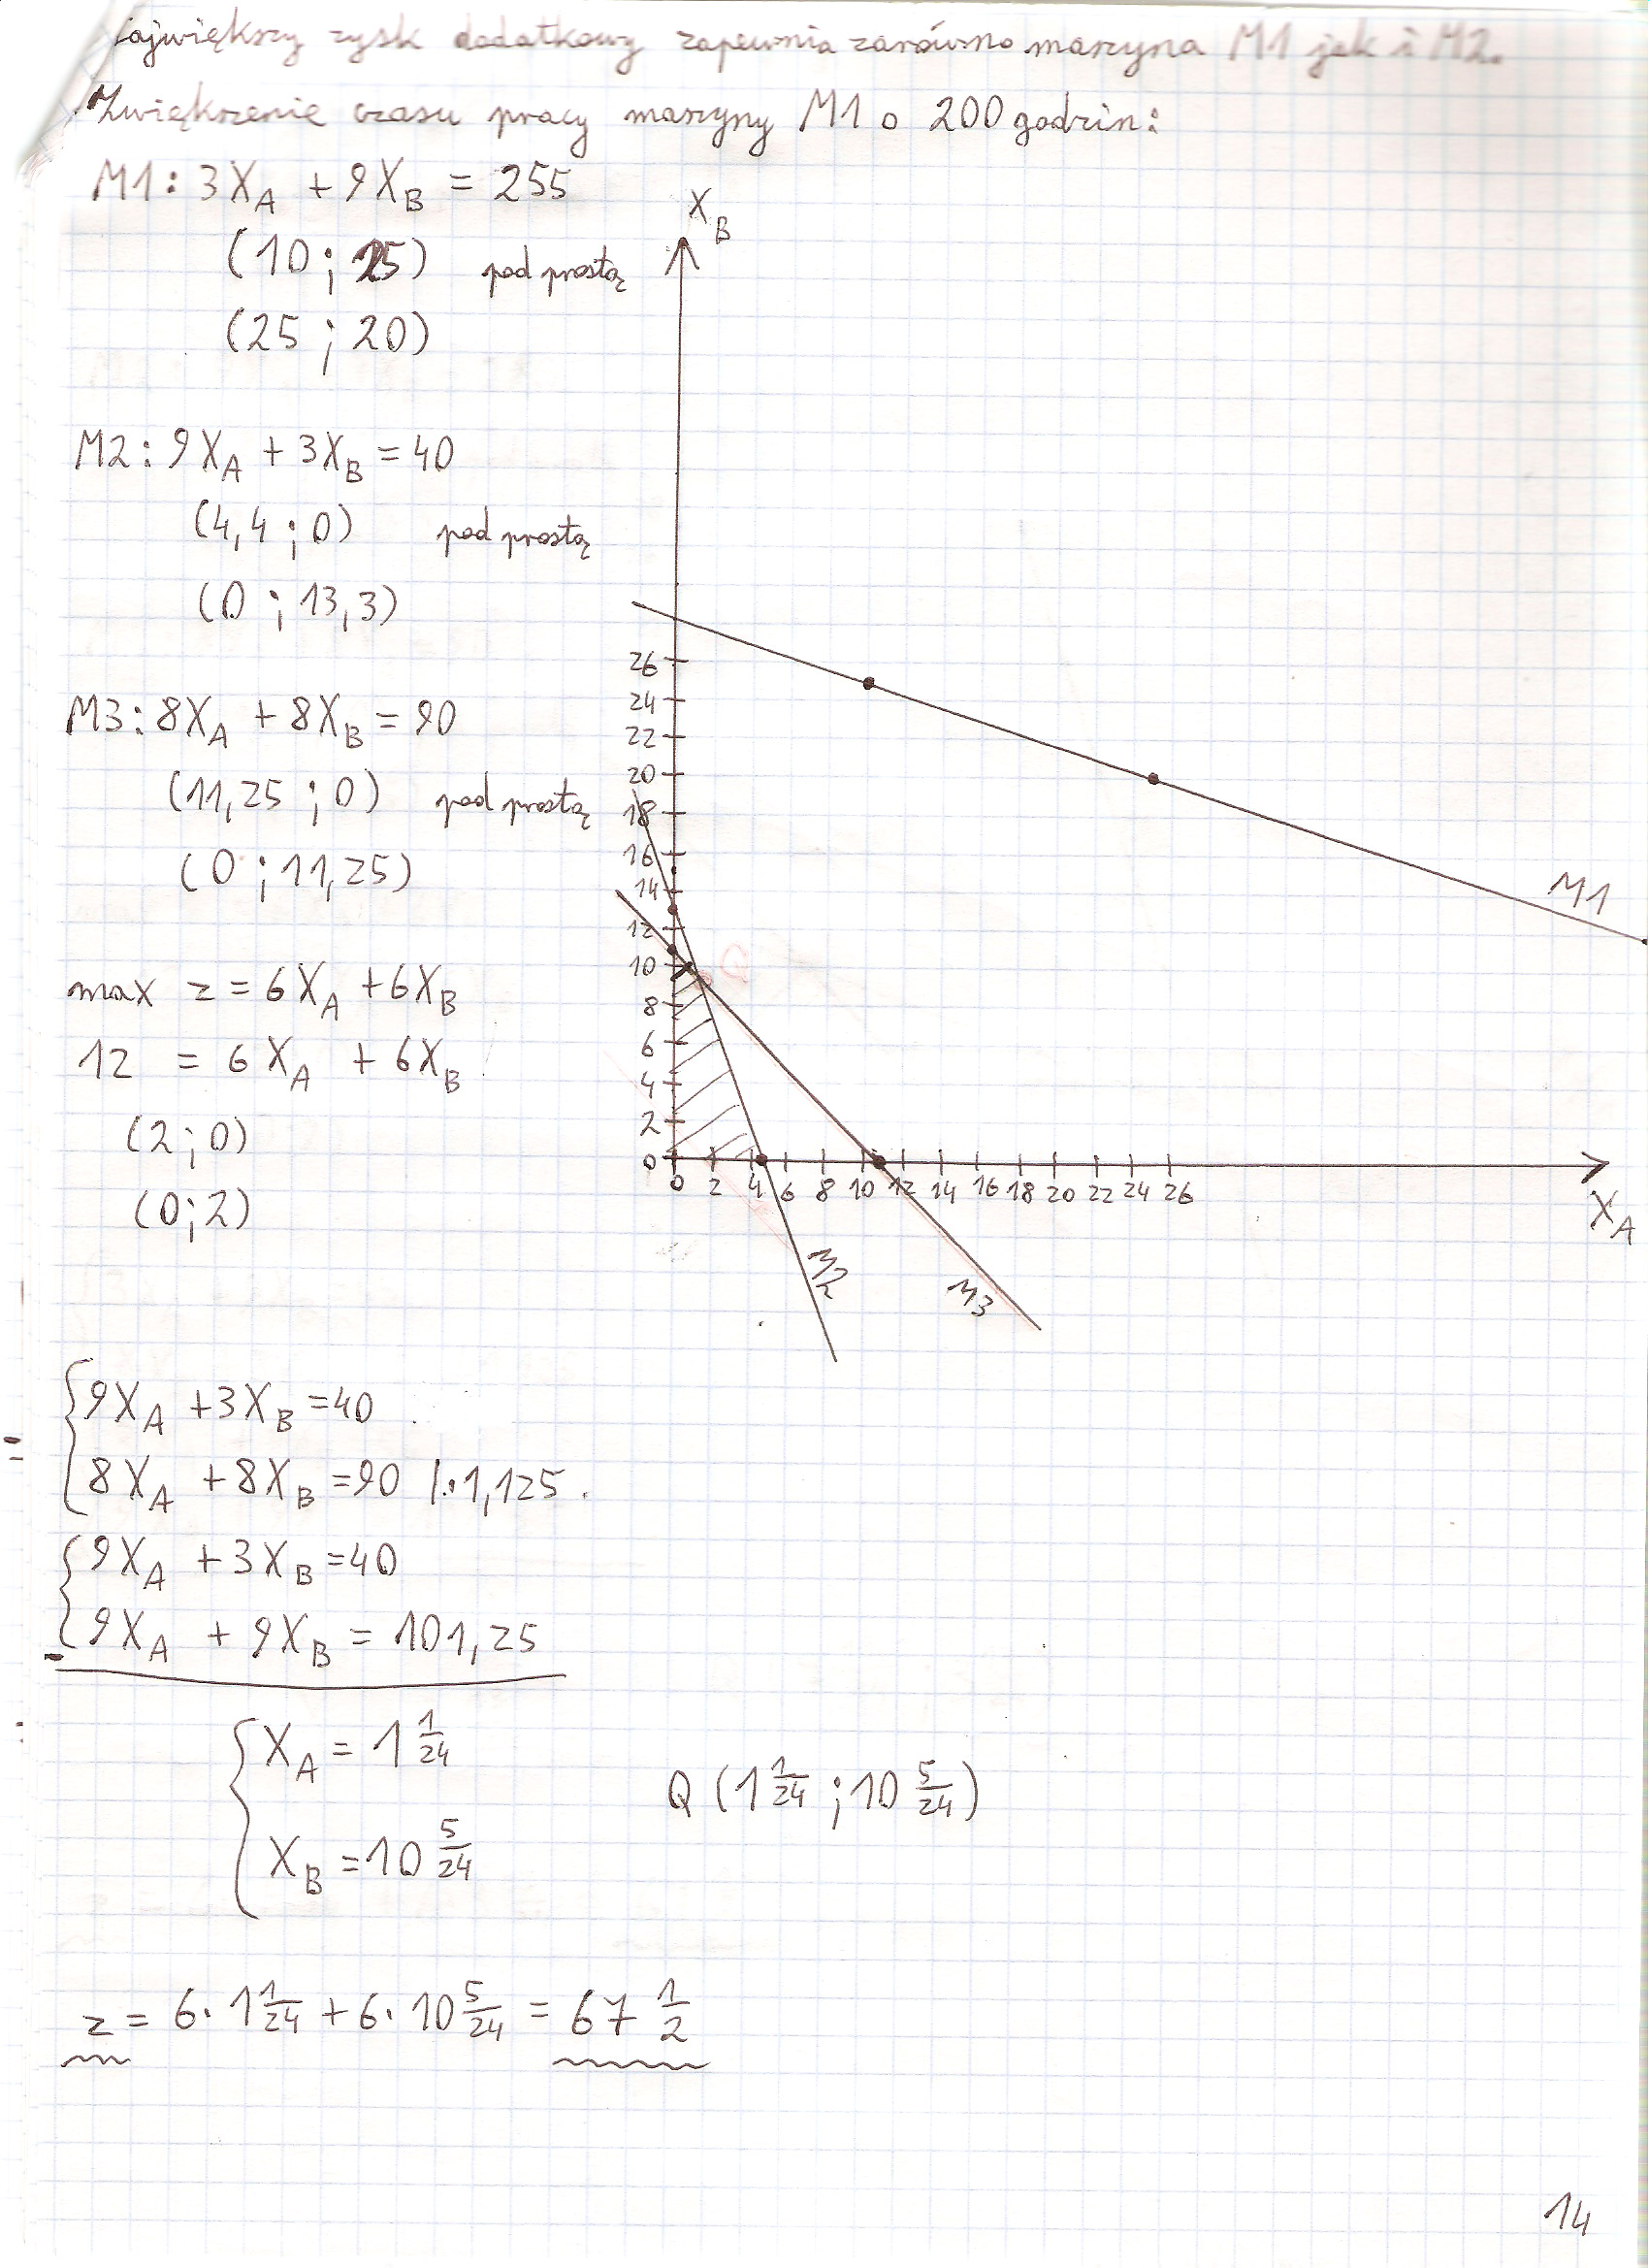 ajwiększy zysk dodatkowy zapewnia zarówno maszyna M1 jak i M2.
Zwiększenie czasu pracy maszyny M1 o 200 godzin:
M1: 3X_A + 9X_B = 255
(10 ; 25) pod prostą
(25 ; 20)
M2: 9X_A + 3X_B = 40
(4,4 ; 0) pod prostą
(0 ; 13,3)
M3: 8X_A + 8X_B = 90
(11,25 ; 0) pod prostą
(0 ; 11,25)
max z = 6X_A + 6X_B
12 = 6X_A + 6X_B
(2 ; 0)
(0 ; 2)
X_B
26
24
22
20
18
16
14
12
10
8
6
4
2
0
0 2 4 6 8 10 12 14 16 18 20 22 24 26
X_A
M1
M2
M3
Q
{ 9X_A + 3X_B = 40
8X_A + 8X_B = 90 /·1,125
{ 9X_A + 3X_B = 40
9X_A + 9X_B = 101,25
-
{ X_A = 1 1/24
X_B = 10 5/24
Q (1 1/24 ; 10 5/24)
z = 6 · 1 1/24 + 6 · 10 5/24 = 67 1/2
14